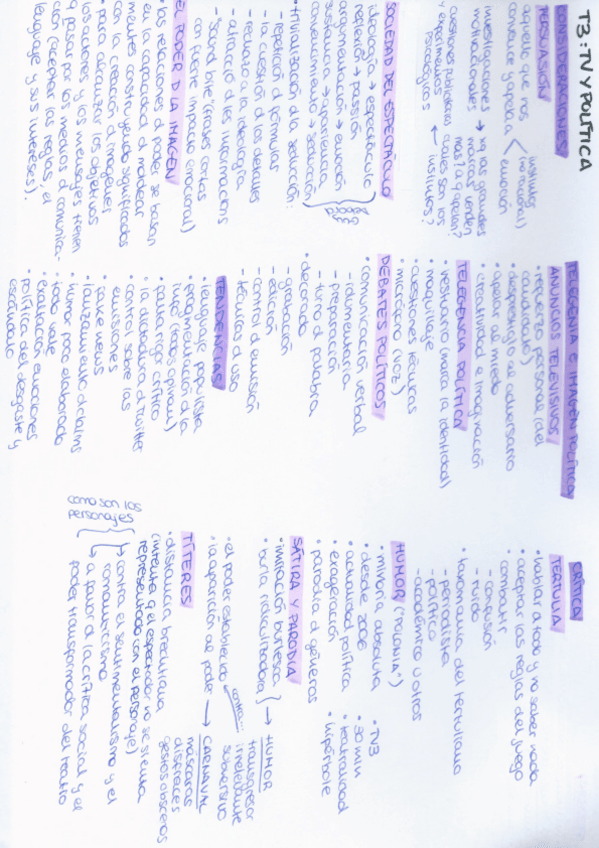 T3: TV Y POLÍTICA
CONSIDERACIONES
PERSUASIÓN
aquello que nos
convence y apela a
instintos
(no racional)
emoción
investigaciones
motivacionales → ya las grandes
marcas venden
más (a q apelan?
cuestiones publicitarias cuales son los
y experimentos ← instintos?
psicológicos
SOCIEDAD DEL ESPECTÁCULO
ideología → espectáculo
reflexión → passión
argumentación → emoción
sustancia → apariencia
convencimiento → seducción
• trivialización de la solución:
- repetición d fórmulas
- la cuestión d los detalles
- rechazo a la ideología
- "sound bite" (frases cortas
con fuerte impacto emocional)
EL PODER D LA IMAGEN
• las relaciones d poder se basan
en la capacidad d moldear
mentes construyendo significados
con la creación d imágenes
• para alcanzar los objetivos
los actores y los mensajes tienen
q pasar por los medios d comunica-
con (aceptar las reglas, el
lenguaje y sus intereses).
TELEGENIA E IMAGEN POLÍTICA
ANUNCIOS TELEVISIVOS
• refuerzo personal (del
candidato)
• desprestigio al adversario
• apelar al miedo
• creatividad e imaginación
TELEGENCIA POLÍTICA
• vestuario (marca la identidad)
• maquillaje
• cuestiones técnicas
• micrófono (voz)
DEBATES POLÍTICOS
• comunicación verbal
- indumentaria
- preparación
- turno d palabra
• decorado
- grabación
- edición
- control d emisión
- técnicas d uso
TENDENCIAS
• lenguaje populista
• fragmentación d la
info (todos opinan)
• falta rigor crítico
• la dictadura d Twitter
• control sobre las
emisiones
• fake news
• lanzamiento d claims
• humor poco elaborado
• todo vale
• exaltación emociones
• política del desgaste y
escándalo
CRÍTICA
TERTULIA
• hablar d todo y no saber nada
• aceptar las reglas del juego
• combatir
- confusión
- ruido
• taxonomía del tertuliano
- periodista
- político
- académico u otros
HUMOR ("POLÒNIA")
• minoría absoluta • TV3
• desde 2006 • 30 min
• actualidad política • teatralidad
• exageración • hipérbole
• parodia d géneros
SÁTIRA Y PARODIA
• imitación burlesca
• burla ridiculizadora → HUMOR
transgresor
irreverente
subversivo
• el poder establecido
contra...
• la aparición al poder → CARNAVAL
máscaras
disfraces
gestos obscenos
TÍTERES
• distancia brechtiana
(intenta q el espectador no se sienta
representado con el personaje)
como son los
personajes
contra el sentimentalismo y el
romanticismo
a favor d la crítica social y el
poder transformador del teatro